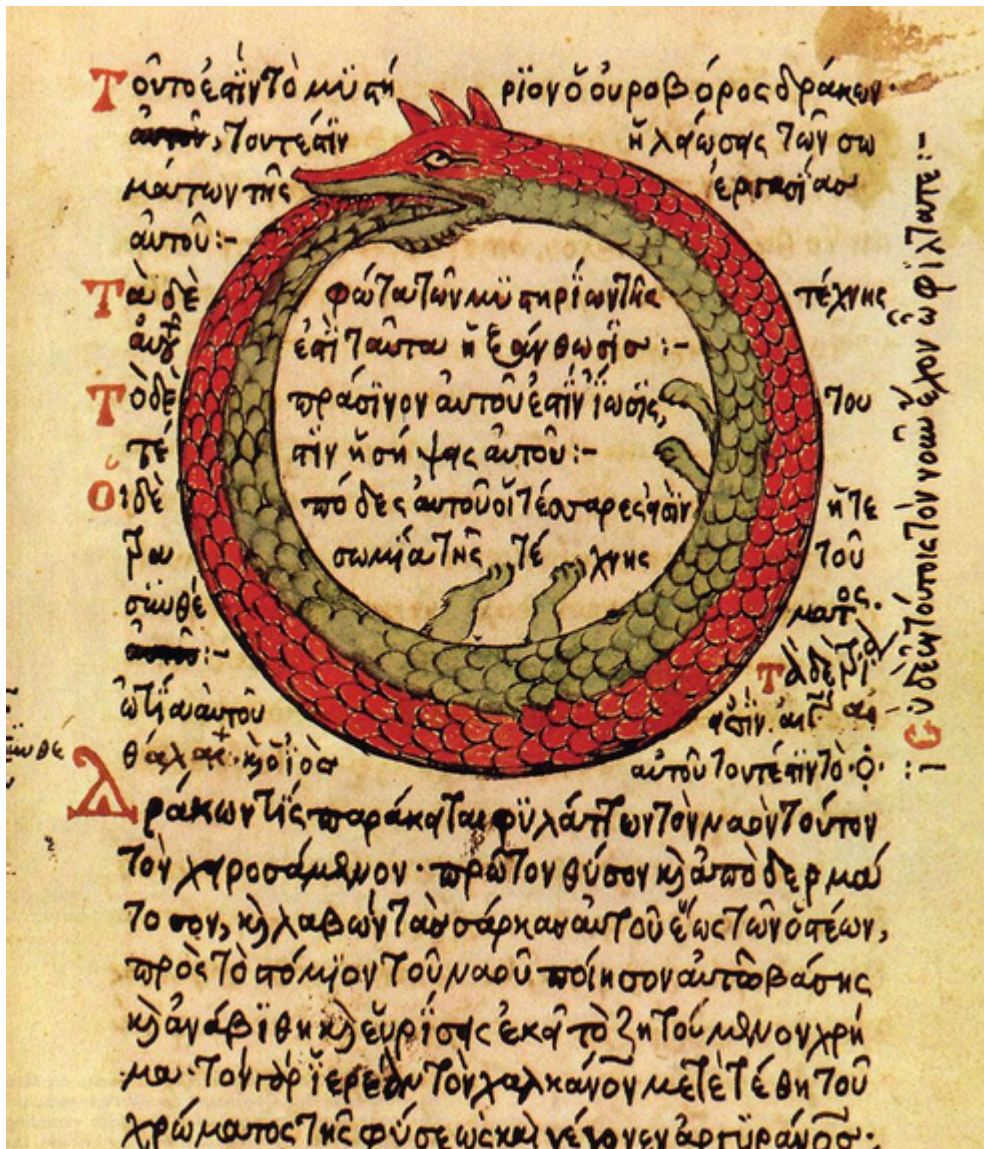 Τοῦτό ἐστϊν τὸ μϋστήρϊον ὁ οὐροβόρος δράκων·
τουτέστϊν τῶν σω
μάτων τῆς ἐργασίας
αὐτοῦ:-
Τὰ δὲ φῶτα τῶν μϋστηρίων τῆς τέχνης
ἐστὶ ταῦτα ἡ ξάνθωσϊς:-
Τὸ δὲ πράσϊνον αὐτοῦ ἐστὶν ἴωσϊς, του
τέστϊν ἡ σήψης αὐτοῦ:-
Οἱ δὲ πόδες αὐτοῦ οἱ τέσσαρες εἰσὶν ἡ τε
τρασωμία τῆς τέχνης τοῦ
συνθέματος.
Τὰ δὲ τρία
ὠτία αὐτοῦ εἰσϊν
αὐτοῦ τουτέστϊν τὸ
Δράκων τϊς παράκειται φϋλάττων τὸν ναὸν τοῦτον
τὸν χειροσάμενον· πρῶτον θύσον κ̀ ἀποδερμά
τοσον, κ̀ λαβὼν τὰς σάρκας αὐτοῦ ἕως τῶν ὀστέων,
πρὸς τὸ στόμϊον τοῦ ναοῦ ποίησον αὐτῶ βάσης
κ̀ ἀνάβϊθη κ̀ εὑρίσης ἐκεῖ τὸ ζητούμενον χρῆ
μα· τὸν γὰρ ἱερέα τὸν χαλκάνο̅ν μετετέθη τοῦ
χρώματος τῆς φύσεως καὶ γέγονεν ἀργϋράνο̅ς·